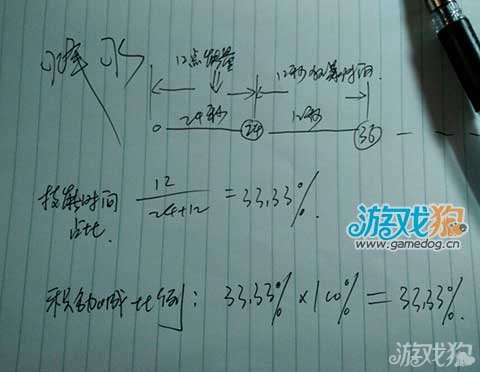 12点能量 12秒技能时间
24秒 12秒
0 24 36
技能时间 12 / 24+12 = 33.33%
占比
游戏狗
www.gamedog.cn
积劲减比例: 33.33% × 100% = 33.33%
游戏狗